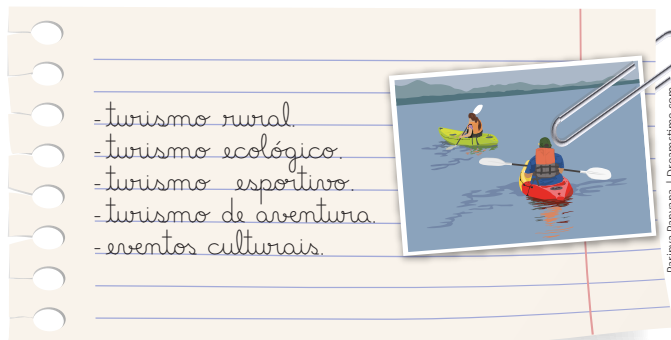 -turismo rural.
-turismo ecológico.
-turismo esportivo.
-turismo de aventura.
-eventos culturais.
| Dreamstime.com